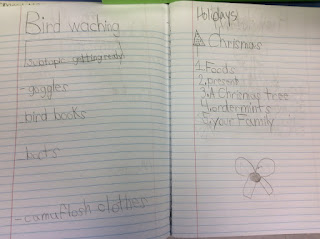 Bird waching
Subtopic getting ready
-goggles
bird books
boots
-camaflosh clothes
Holidays!
Chrismas
1. Foods
2. present
3. A Chrismas tree
4. ordermints
5. your Family